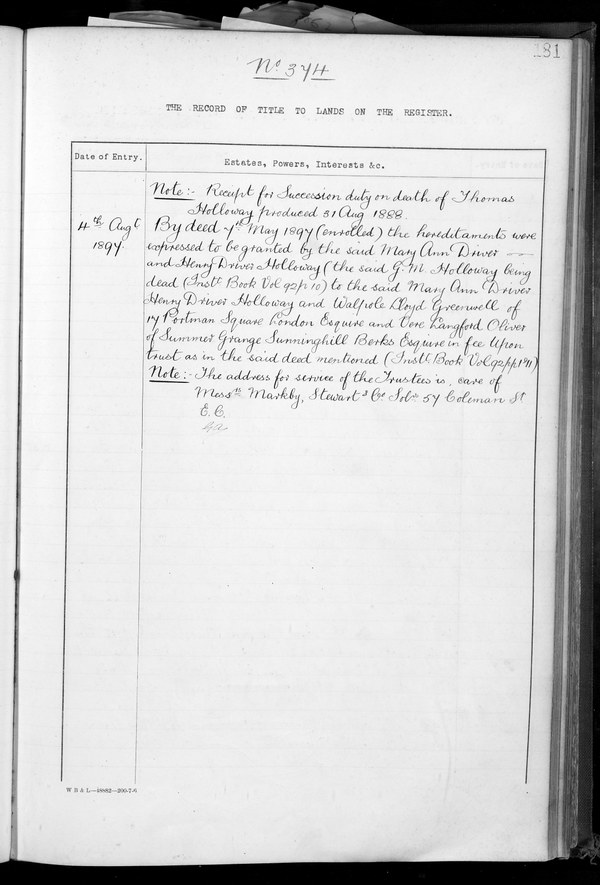 181
No 374
THE RECORD OF TITLE TO LANDS ON THE REGISTER.
Date of Entry.
Estates, Powers, Interests &c.
Note:- Receipt for Succession duty on death of Thomas
Holloway produced 31 Aug 1888
4th Augt
1897.
By deed 7th May 1897 (enrolled) the hereditaments were
expressed to be granted by the said Mary Ann Driver
and Henry Driver Holloway (the said G. M. Holloway being
dead (Instt Book Vol 92 p 10) to the said Mary Ann Driver
Henry Driver Holloway and Walpole Lloyd Greenwell of
17 Portman Square London Esquire and Vere Langford Oliver
of Summer Grange Sunninghill Berks Esquire in fee Upon
trust as in the said deed mentioned (Instt Book Vol 92 pp 1 11)
Note:- The address for service of the Trustees is, care of
Messrs Markby, Stewart & Co Solrs 57 Coleman St
E.C.
W B & L—48882—200-7-6